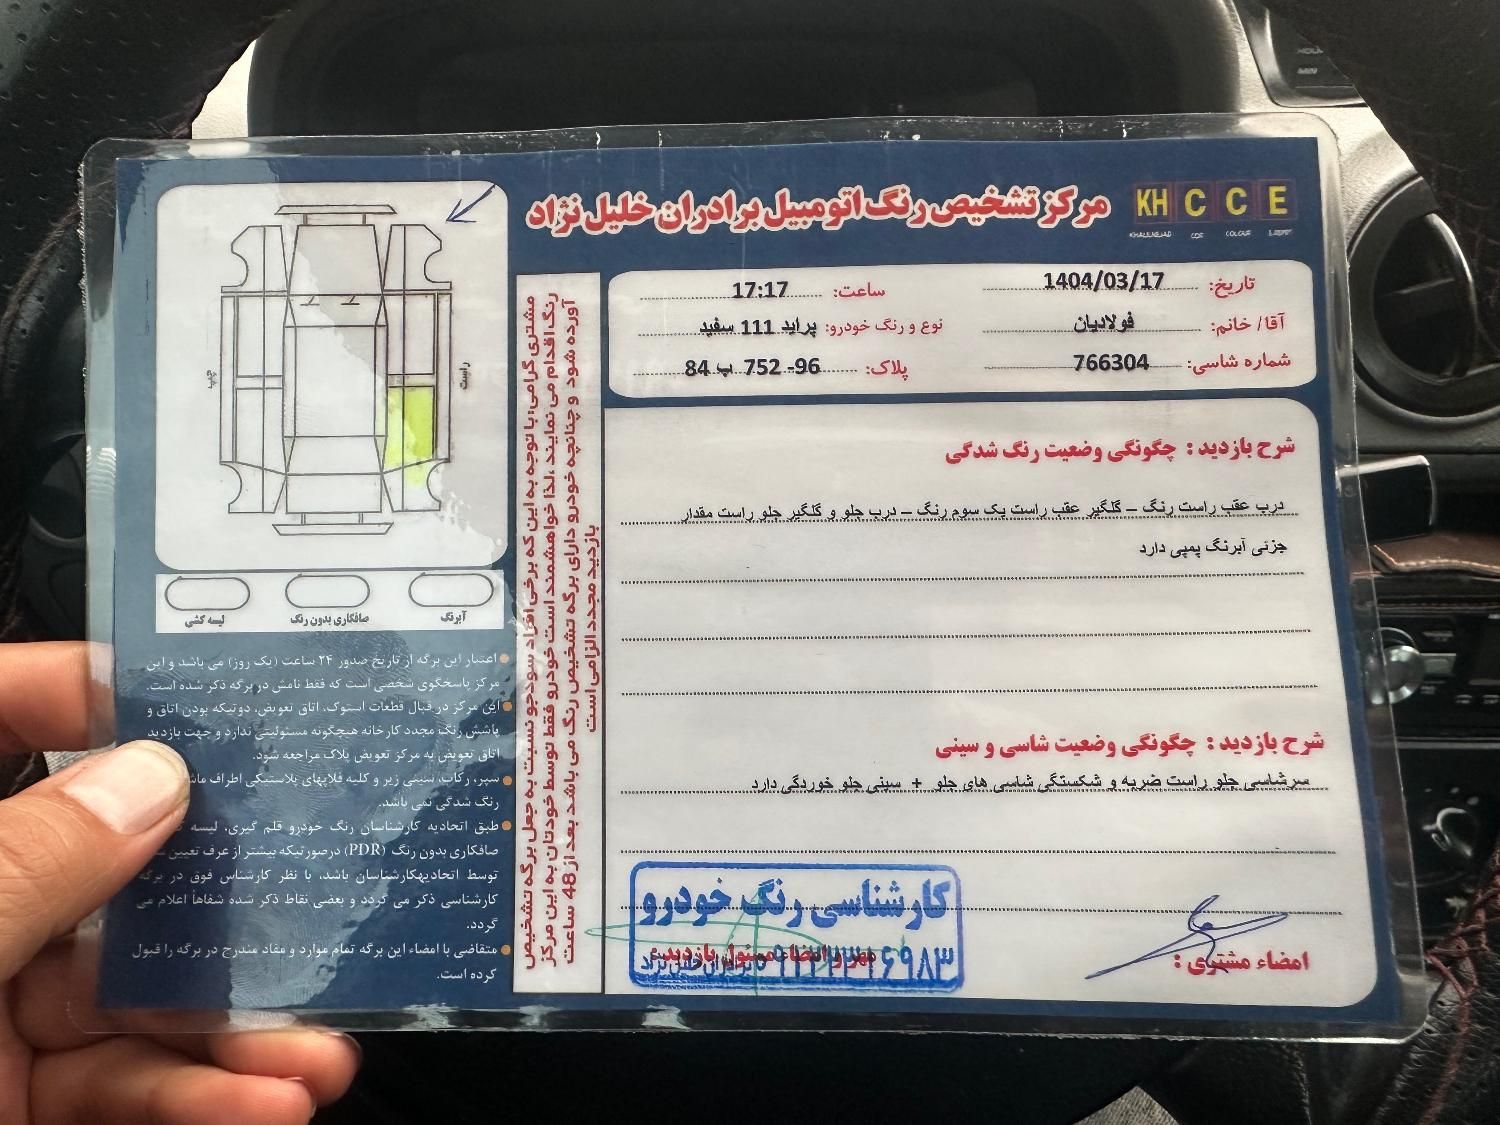 مرکز تشخیص رنگ اتومبیل برادران خلیل نژاد
KH C C E
تاریخ: 1404/03/17
ساعت: 17:17
آقا/ خانم: فولادیان
نوع و رنگ خودرو: پراید 111 سفید
شماره شاسی: 766304
پلاک: 96- 752 ب 84
راست
چپ
آبرنگ
صافکاری بدون رنگ
لیسه کشی
مشتری گرامی، با توجه به این که برخی افراد سودجو نسبت به جعل برگه تشخیص
رنگ اقدام می نمایند، لذا خواهشمند است خودرو فقط توسط خودتان به این مرکز
آورده شود و چنانچه خودرو دارای برگه تشخیص رنگ می باشد بعد از 48 ساعت
بازدید مجدد الزامی است
شرح بازدید : چگونگی وضعیت رنگ شدگی
درب عقب راست رنگ – گلگیر عقب راست یک سوم رنگ – درب جلو و گلگیر جلو راست مقدار
جزئی آبرنگ پمپی دارد
شرح بازدید : چگونگی وضعیت شاسی و سینی
سرشاسی جلو راست ضربه و شکستگی شاسی های جلو + سینی جلو خوردگی دارد
اعتبار این برگه از تاریخ صدور ۲۴ ساعت (یک روز) می باشد و این
مرکز پاسخگوی شخصی است که فقط نامش در برگه ذکر شده است.
این مرکز در قبال قطعات استوک، اتاق تعویض، دوتیکه بودن اتاق و
پاشش رنگ مجدد کارخانه هیچگونه مسئولیتی ندارد و جهت بازدید
اتاق تعویض به مرکز تعویض پلاک مراجعه شود.
سپر، رکاب، سینی زیر و کلیه قلابهای پلاستیکی اطراف
رنگ شدگی نمی باشد.
طبق اتحادیه کارشناسان رنگ خودرو قلم گیری، لیسه
صافکاری بدون رنگ (PDR) درصورتیکه بیشتر از عرف تعیین
توسط اتحادیهکارشناسان باشد، با نظر کارشناس فوق در برگه
کارشناسی ذکر می گردد و بعضی نقاط ذکر شده شفاها اعلام می
گردد.
متقاضی با امضاء این برگه تمام موارد و مفاد مندرج در برگه را قبول
کرده است.
کارشناسی رنگ خودرو
مهر و امضاء مسئول بازدید:
امضاء مشتری :